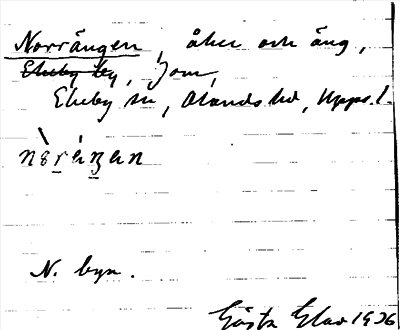 Norrängen, åker och äng,
Ekeby by, Jom,
Ekeby sn, Olands hd, Upps. l.
nòrä́ŋan
N. byn.
Gösta Elav 1936